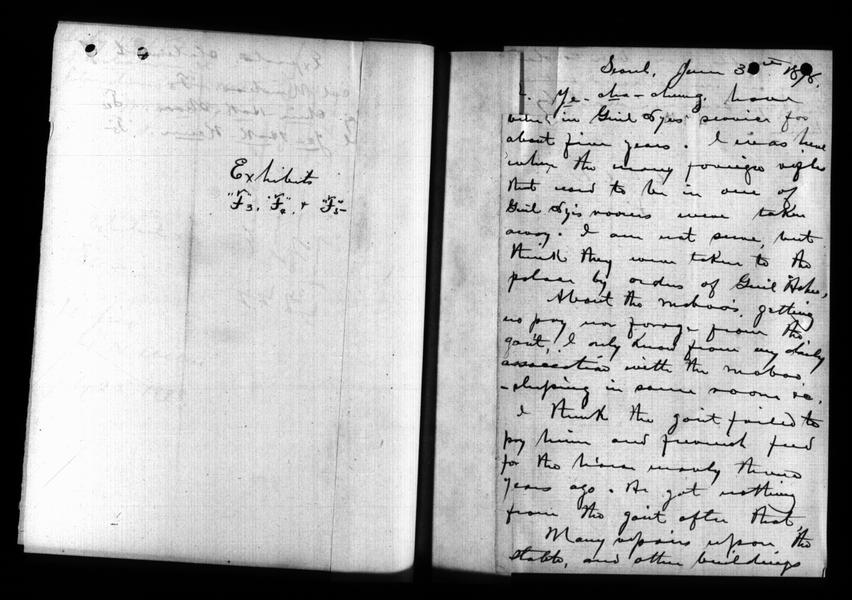 Exhibits
"F"3, "F"4, & "F"5
Seoul, June 30th 1898.
I. Ye-cha-chung, have
been in Genl Dye's service for
about five years. I was here
when the many foreign rifles
that used to be in one of
Genl Dye's rooms were taken
away. I am not sure, but
think they were taken to the
palace by orders of Genl
About the maboo's getting
no pay nor forage from the
gov't, I only know from my daily
association with the maboo,
- sleeping in same room &c.
I think the gov't failed to
pay him and furnish feed
for the horse nearly three
years ago. He got nothing
from the gov't after that.
Many repairs upon the
stable, and other buildings